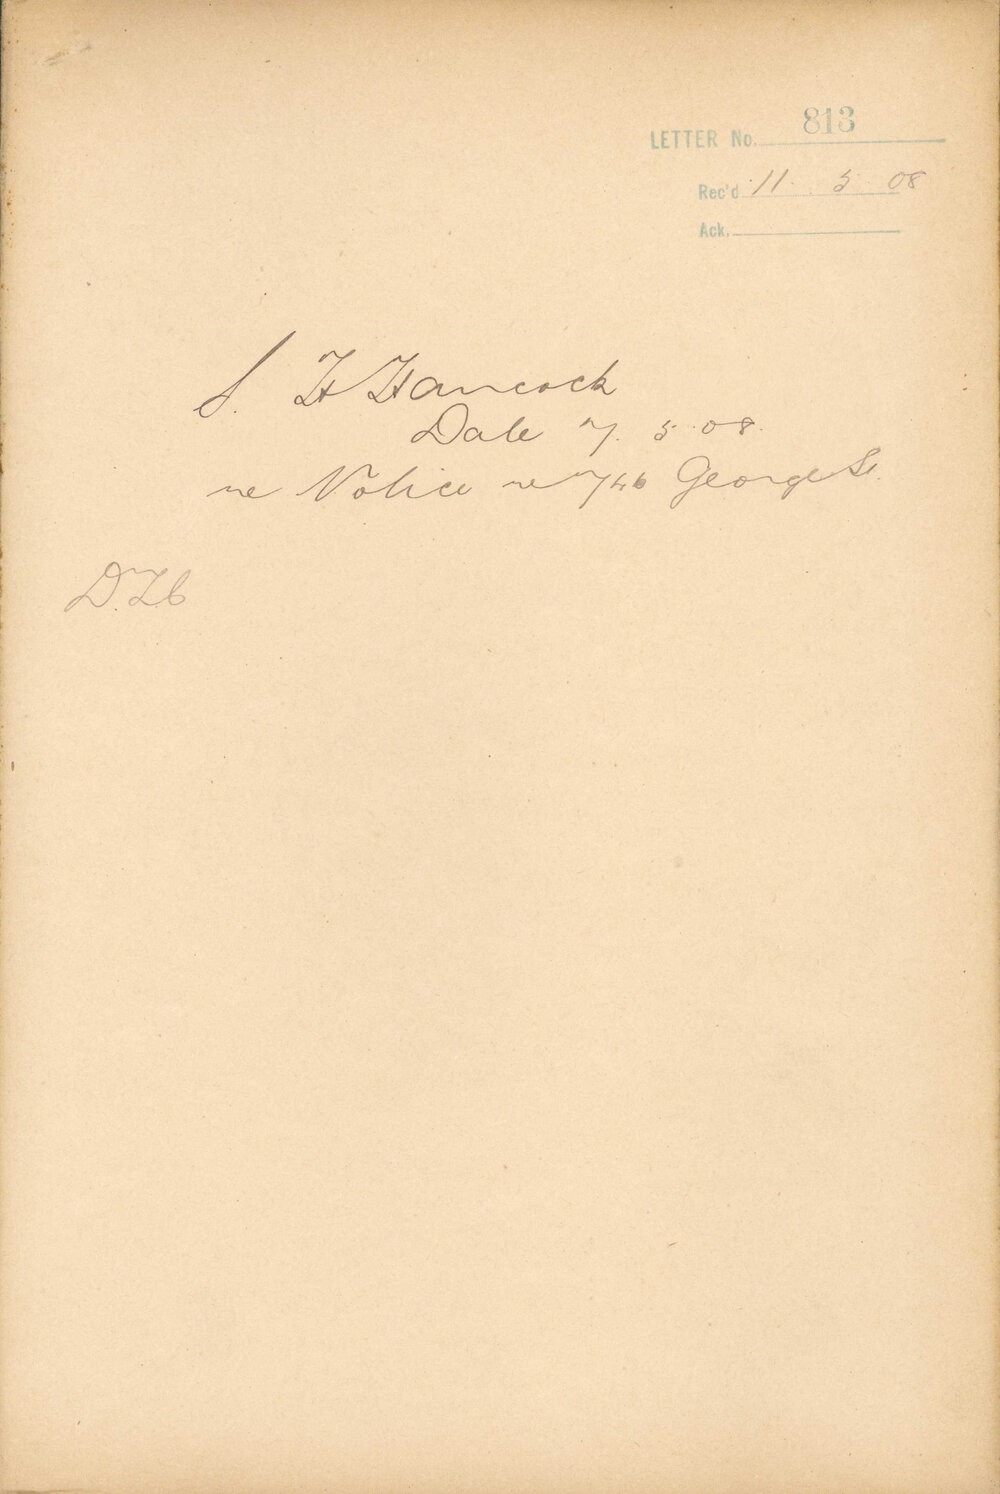 LETTER No. 813
Rec'd 11. 5. 08
Ack.
S. H Hancock
Date 7. 5. 08.
re Notice re 746 George St.